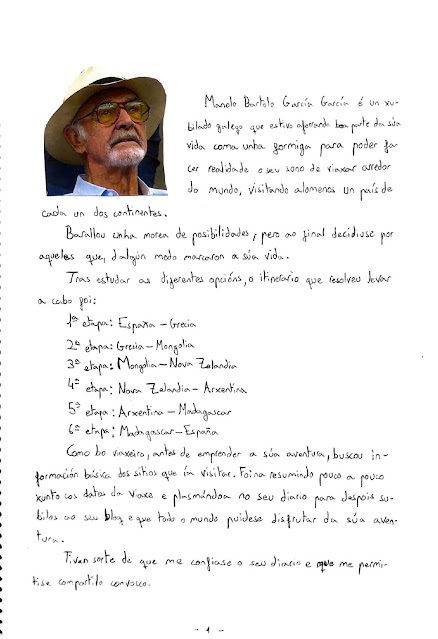 Manolo Bartolo García García é un xu-
bilado galego que estivo aforrando boa parte da súa
vida coma unha formiga para poder fa-
cer realidade o seu sono de viaxar arredor
do mundo, visitando alomenos un país de
cada un dos continentes.
Barallou unha morea de posibilidades, pero ao final decidiuse por
aqueles que, dalgún modo marcaron a súa vida.
Tras estudar as diferentes opcións, o itinerario que resolveu levar
a cabo foi:
1ª etapa: España - Grecia
2ª etapa: Grecia - Mongolia
3ª etapa: Mongolia - Nova Zelandia
4ª etapa: Nova Zelandia - Arxentina
5ª etapa: Arxentina - Madagascar
6ª etapa: Madagascar - España
Como bo viaxeiro, antes de emprender a súa aventura, buscou in-
formación básica dos sitios que ía visitar. Foina resumindo pouco a pouco
xunto cos datos da viaxe e plasmándoa no seu diario para despois su-
bilos ao seu blog e que todo o mundo puidese disfrutar da súa aven-
tura.
Tiven sorte de que me confiase o seu diario e que me permi-
tise compartilo convosco.
- 1 -